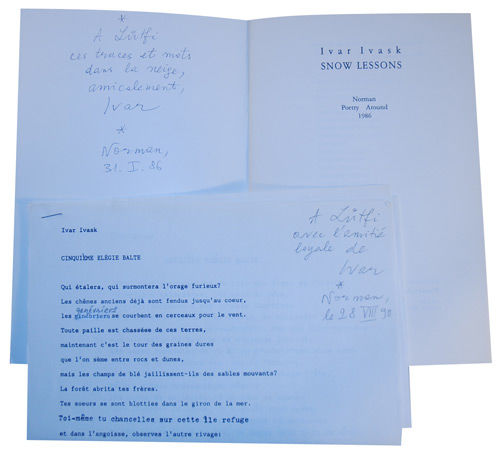 *
A Lûtfi
ces traces et mots
dans la neige,
amicalement,
Ivar
*
Norman,
31. I. 86
Ivar Ivask
SNOW LESSONS
Norman
Poetry Around
1986
Ivar Ivask
A Lûtfi
avec l'amitié
loyale de
Ivar
*
Norman,
le 28 VIII 90
CINQUIÈME ELÉGIE BALTE
Qui étalera, qui surmontera l'orage furieux?
Les chênes anciens déjà sont fendus jusqu'au coeur,
genévriers
les se courbent en cerceaux pour le vent.
Toute paille est chassée de ces terres,
maintenant c'est le tour des graines dures
que l'on sème entre rocs et dunes,
mais les champs de blé jaillissent-ils des sables mouvants?
La forêt abrita tes frères.
Tes soeurs se sont blotties dans le giron de la mer.
Toi-même tu chancelles sur cette île refuge
et dans l'angoisse, observes l'autre rivage: